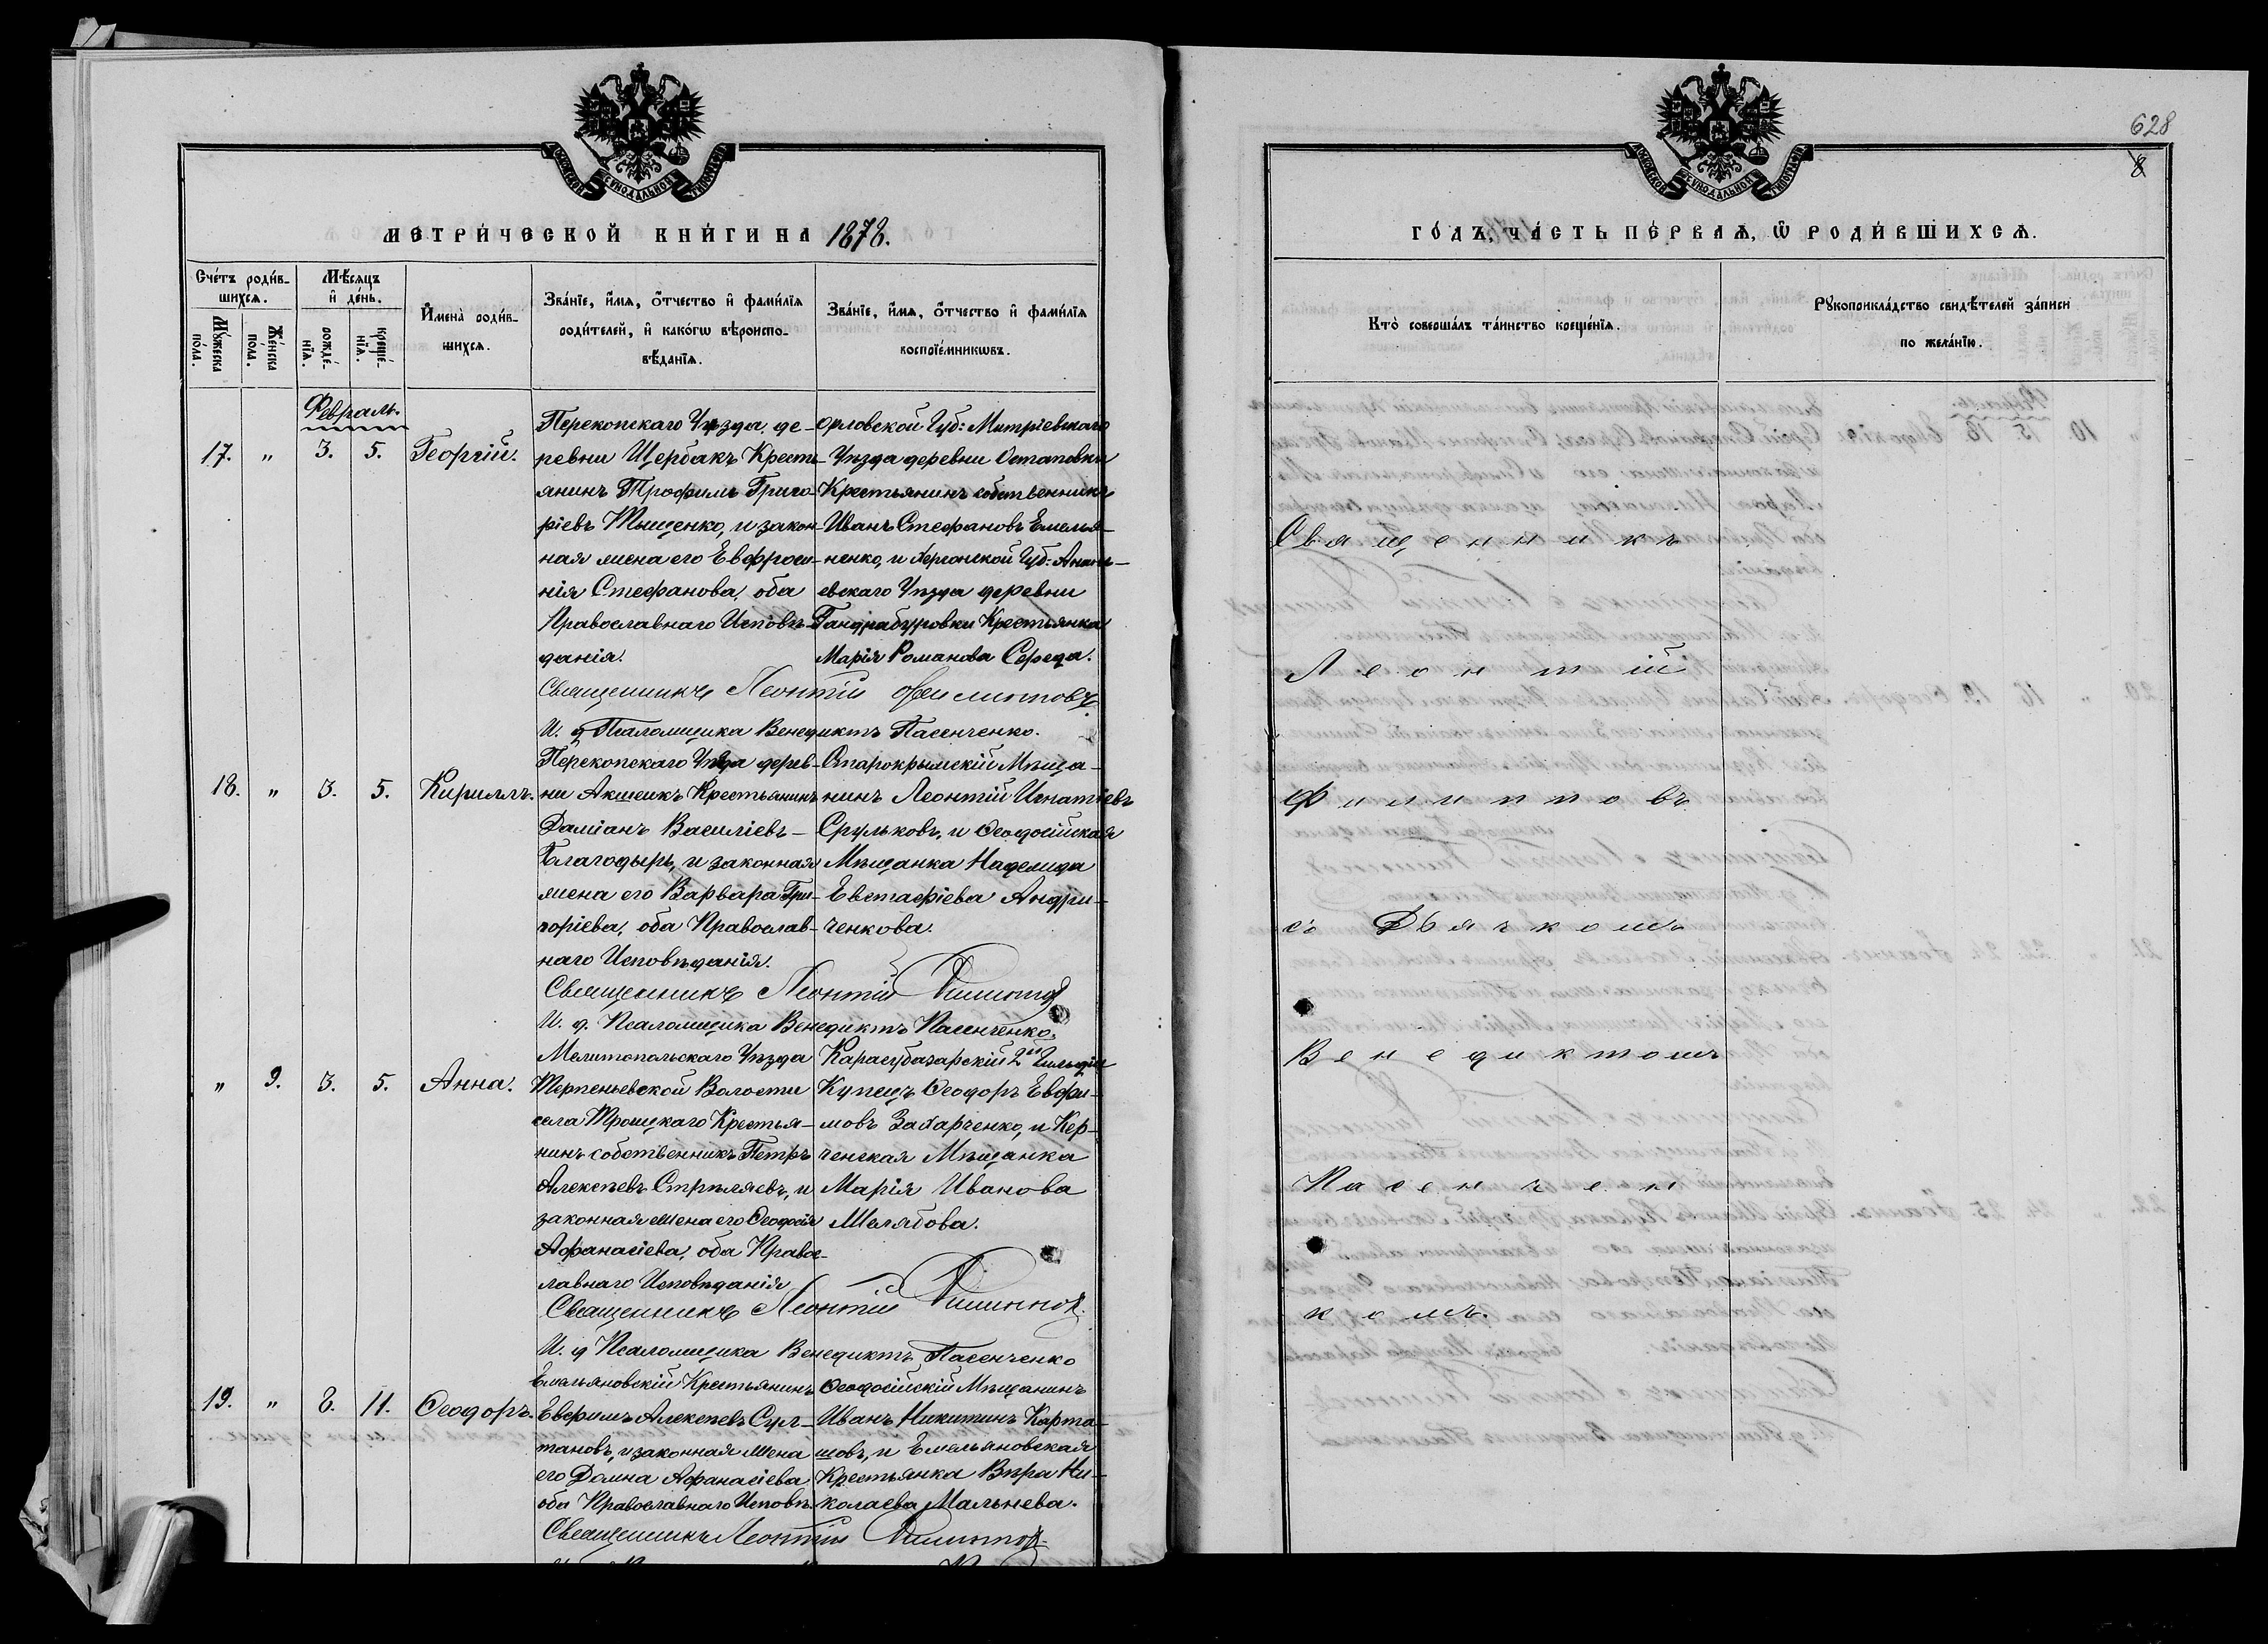 МОСКОВСКОЙ СѴНОДАЛЬНОЙ ТИПОГРАФІИ
МЕТРИ́ЧЕСКОЙ КНИ́ГИ НА 1878.
Сче́тъ роди́в-
шихсѧ.
Мѹ́жеска по́ла.
Же́нска по́ла.
Мѣ́сѧцъ
и҆ де́нь.
рожде́-
нїѧ.
креще́-
нїѧ.
И҆мена̀ роди́в-
шихсѧ.
Зва́нїе, и҆́мѧ, ѻ҆́тчество и҆ фами́лїѧ
роди́телей, и҆ како́гѡ вѣроиспо-
вѣ́данїѧ.
Зва́нїе, и҆́мѧ, ѻ҆́тчество и҆ фами́лїѧ
воспрїе́мникѡвъ.
Февраль.
17. " 3. 5. Георгій.
Перекопскаго Уѣзда, де-
ревни Щербакъ Кресть-
янинъ Трофимъ Григо-
ріевъ Тыщенко, и закон-
ная жена его Евфроси-
нія Стефанова, оба
Православнаго Исповѣ-
данія.
Орловской Губ: Митріевскаго
Уѣзда деревни Остаповки
Крестьянинъ собственникъ
Иванъ Стефановъ Емелья-
ненко, и Херсонской Губ: Анань-
евскаго Уѣзда деревни
Гандрабуровки Крестьянка
Марія Романова Середа.
Священникъ Леонтій Филиповъ
И. д. Псаломщика Венедиктъ Пасенченко.
18. " 3. 5. Кириллъ.
Перекопскаго Уѣзда дерев-
ни Акшеикъ Крестьянинъ
Даміанъ Василіевъ
Благодыръ, и законная
жена его Варвара Гри-
горіева, оба Православ-
наго Исповѣданія.
Старокрымскій Мѣща-
нинъ Леонтій Игнатіевъ
Срульковъ, и Ѳеодосійская
Мѣщанка Надежда
Евстафіева Андри-
ченкова.
Священникъ Леонтій Филиповъ
И. д. Псаломщика Венедиктъ Пасенченко.
" 9. 3. 5. Анна.
Мелитопольскаго Уѣзда
Терпеньевской Волости
села Троицкаго Крестья-
нинъ собственникъ Петръ
Алексѣевъ Стрѣляевъ, и
законная жена его Ѳеодосія
Афанасіева, оба Правос-
лавнаго Исповѣданія
Карасубазарскій 2й Гильдіи
Купецъ Ѳеодоръ Евфи-
мовъ Захарченко, и Кер-
ченская Мѣщанка
Марія Иванова
Шелябова.
Священникъ Леонтій Филиповъ
И. д. Псаломщика Венедиктъ Пасенченко
19. " 8. 11. Ѳеодоръ.
Емельяновскій Крестьянинъ
Евфимъ Алексѣевъ Сул-
тановъ, и законная жена
его Домна Афанасіева
оба Православнаго Исповѣ.
Ѳеодосійскій Мѣщанинъ
Иванъ Никитинъ Карта-
шовъ, и Емельяновская
Крестьянка Вѣра Ни-
колаева Мальнева.
Священникъ Леонтій Филиповъ
628
8
МОСКОВСКОЙ СѴНОДАЛЬНОЙ ТИПОГРАФІИ
ГО́ДЪ, ЧА́СТЬ ПЕ́РВАѦ, Ѡ҆ РОДИ́ВШИХСѦ.
Кто̀ соверша́лъ та́инство креще́нїѧ.
Рѹкоприкла́дство свидѣ́телей за́писи
по жела́нїю.
Священникъ
Леонтій
Филипповъ
съ Дьячкомъ
Венедиктомъ
Пасенчен
комъ.